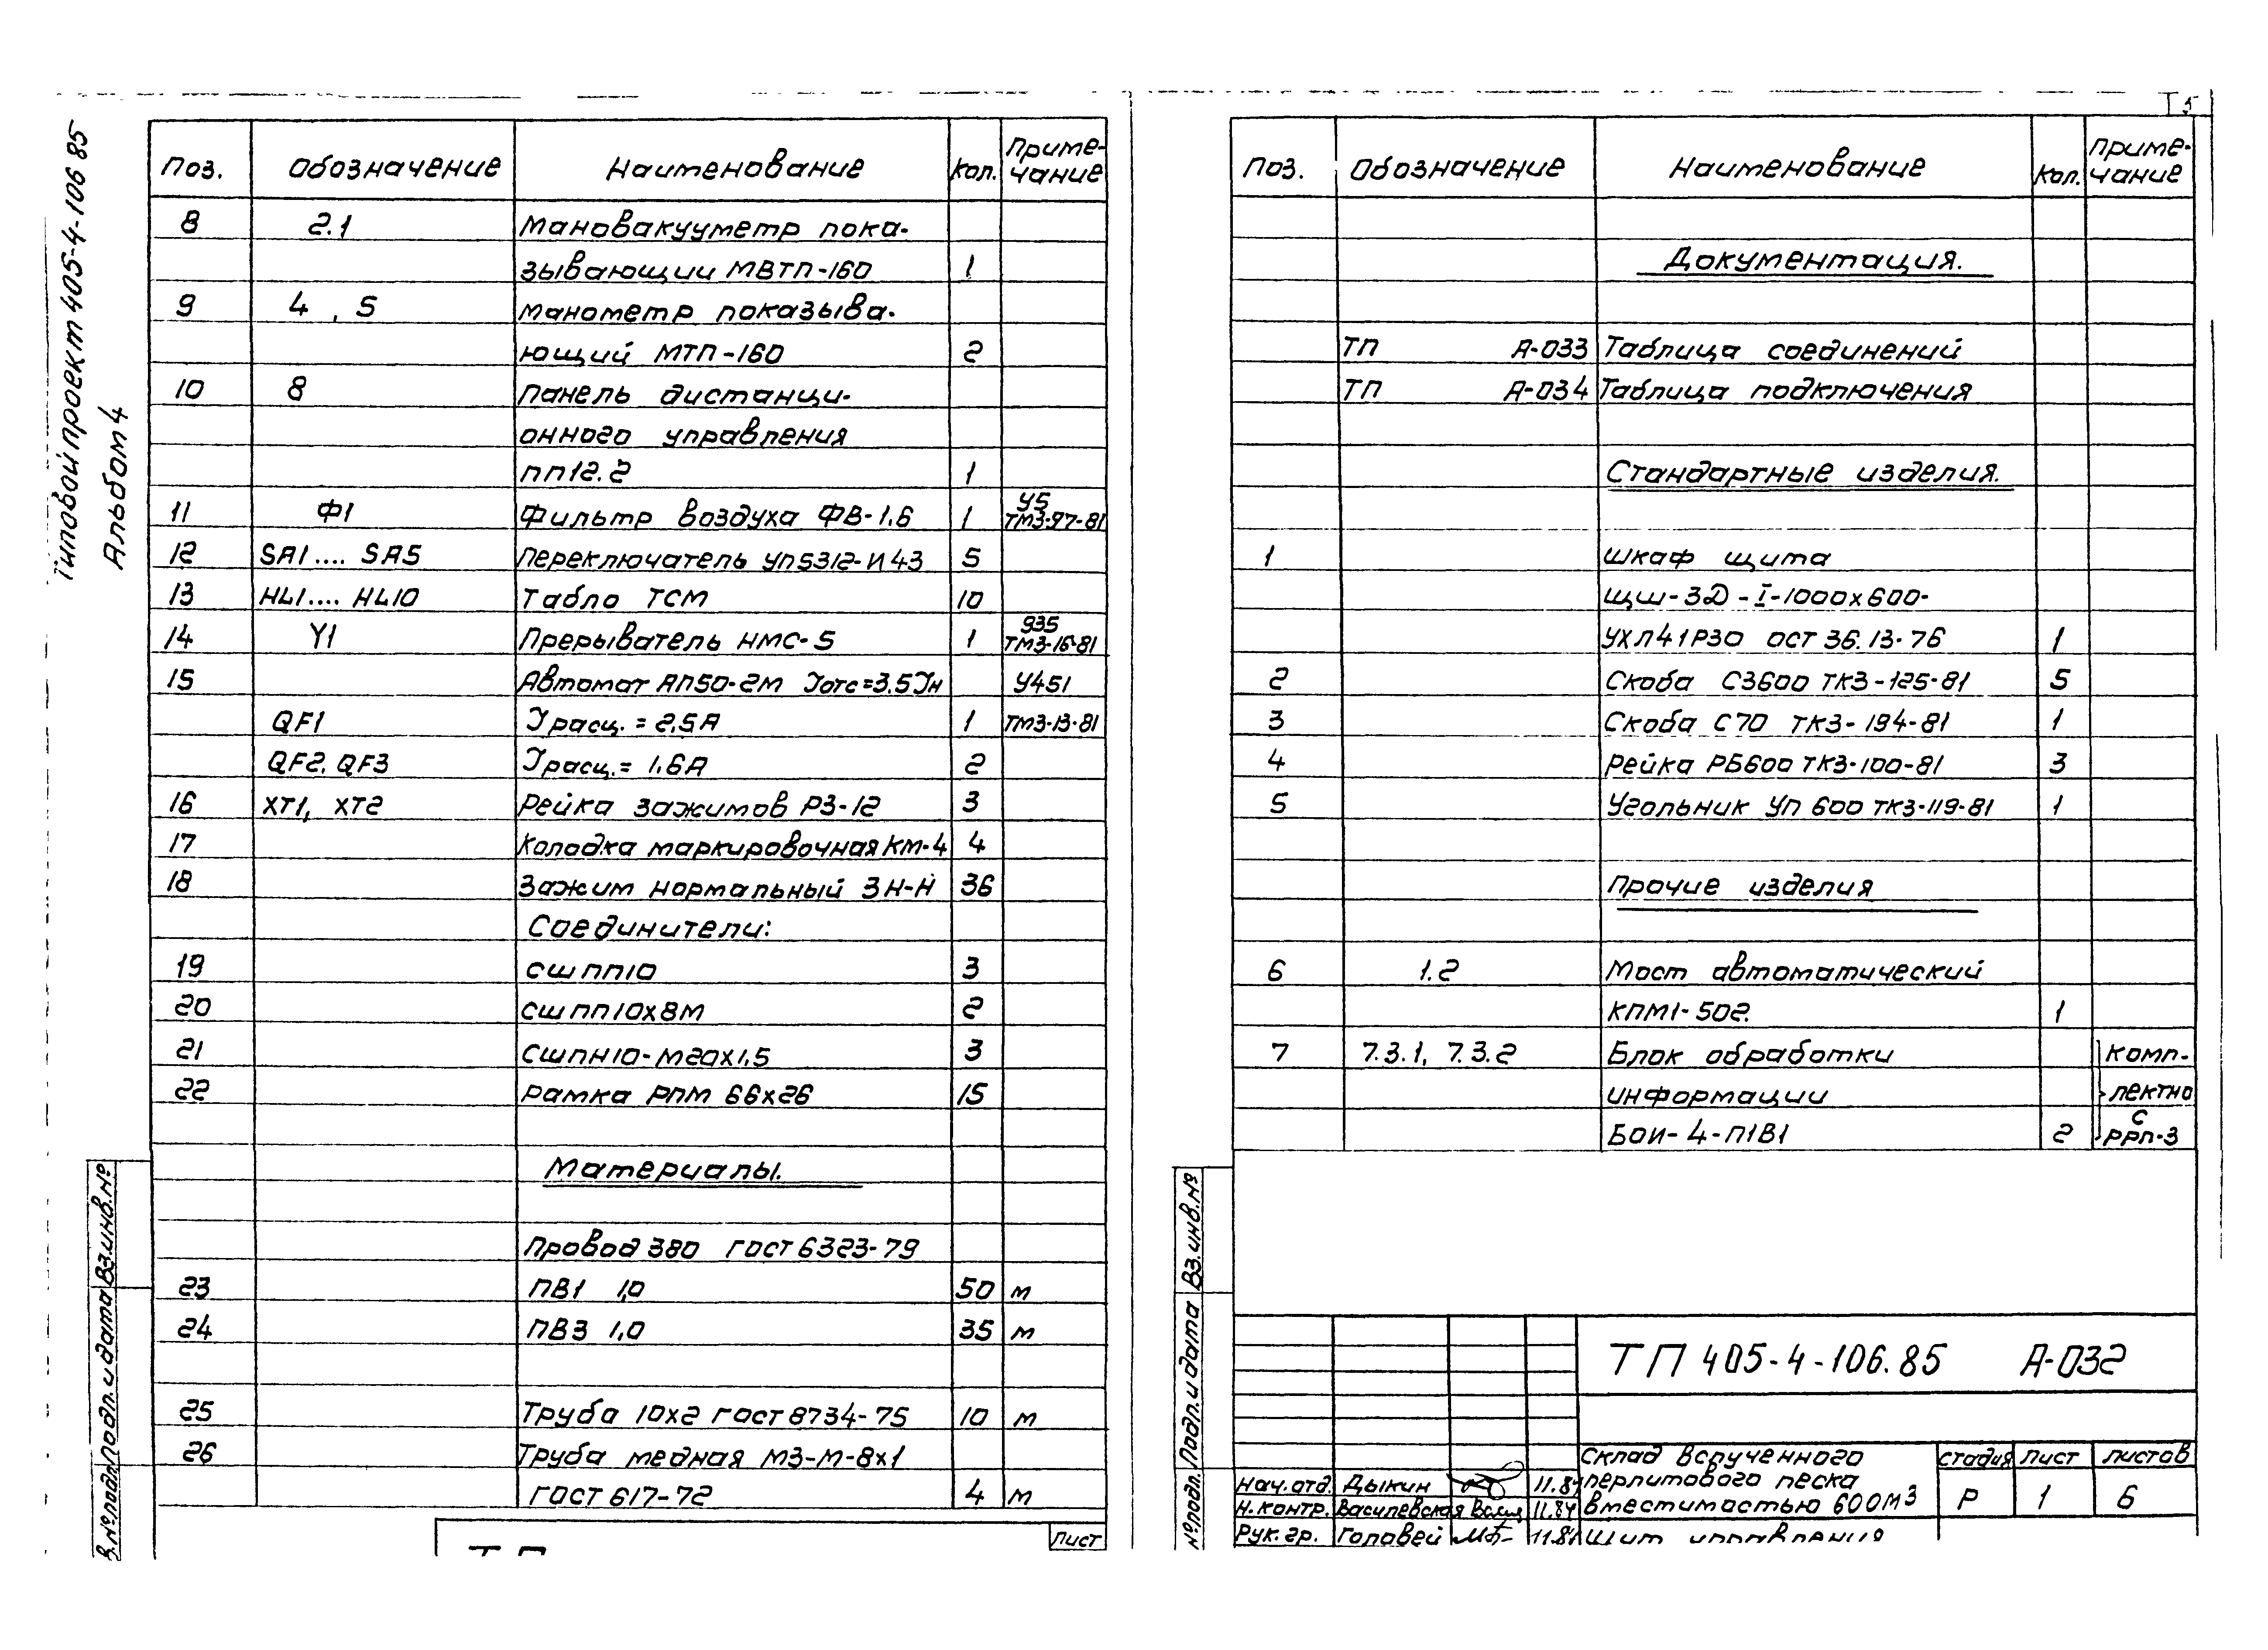 Типовой проект 405-4-106 85
Альбом 4
Поз. Обозначение Наименование Кол. Приме-
чание
8 2.1 Мановакууметр пока-
зывающии МВТП-160 1
9 4 , 5 Манометр показыва-
ющий МТП-160 2
10 8 Панель дистанци-
онного управления
ПП12.2 1
11 Ф1 Фильтр воздуха ФВ-1.6 1 У5
ТМ3-97-81
12 SA1.... SA5 Переключатель УП5312-И43 5
13 HL1.... HL10 Табло ТСМ 10
14 Y1 Прерыватель НМС-5 1 У35
ТМ3-16-81
15 Автомат АП50-2М Iотс=3.5Iн У451
QF1 Iрасц.= 2,5А 1 ТМ3-13-81
QF2. QF3 Iрасц.= 1,6А 2
16 XT1, XT2 Рейка зажимов РЗ-12 3
17 Колодка маркировочная КМ-4 4
18 Зажим нормальный ЗН-Н 36
Соединители:
19 СШ ПП10 3
20 СШ ПП10х8М 2
21 СШПН10-М20х1,5 3
22 Рамка РПМ 66х26 15
Материалы.
Провод 380 ГОСТ 6323-79
23 ПВ1 1,0 50 м
24 ПВ3 1,0 35 м
25 Труба 10х2 ГОСТ 8734-75 10 м
26 Труба медная М3-М-8х1
ГОСТ 617-72 4 м
Лист
В.№подл. Подп. и дата Вз.инв.№
5
Поз. Обозначение Наименование Кол. Приме-
чание
Документация.
ТП А-033 Таблица соединений
ТП А-034 Таблица подключения
Стандартные изделия.
1 Шкаф щита
ЩШ-3Д-I-1000х600-
УХЛ41Р30 ОСТ 36.13-76 1
2 Скоба С3600 ТК3-125-81 5
3 Скоба С70 ТК3-194-81 1
4 Рейка РБ600 ТК3-100-81 3
5 Угольник УП 600 ТК3-119-81 1
Прочие изделия
6 1.2 Мост автоматический
КПМ1-502. 1
7 7.3.1, 7.3.2 Блок обработки комп-
информации лектно
с
БОИ-4-П1В1 2 РРП-3
№подл. Подп. и дата Вз.инв.№
ТП 405-4-106.85 А-032
Склад вспученного
перлитового песка
вместимостью 600м3
Щит управления
стадия лист листов
Р 1 6
Нач.отд. Дыкин 11.84
Н.контр. Василевская 11.84
Рук.гр. Головей 11.84